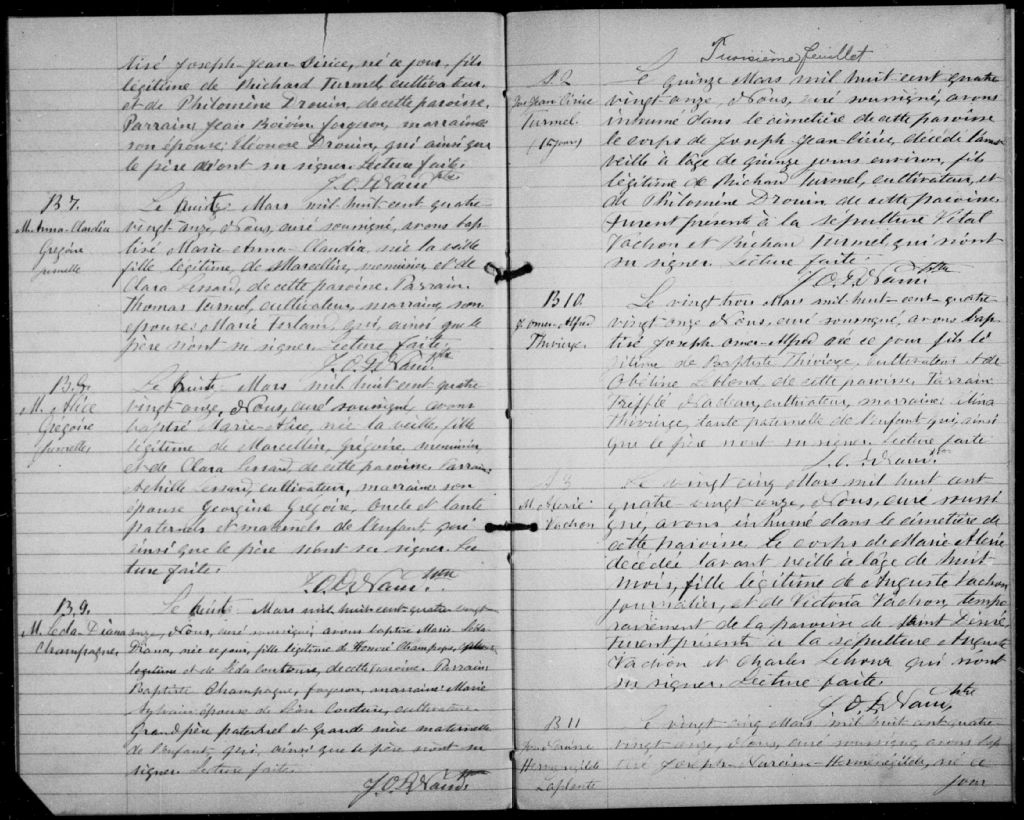 tisé Joseph-Jean-Cirice, né ce jour, fils
légitime de Richard Turmel, cultivateur,
et de Philomène Drouin, de cette paroisse.
Parrain, Jean Boivin, forgeron, marraine
son épouse Eléonore Drouin, qui ainsi que
le père n'ont su signer. Lecture faite.
B 7.
M. Anna-Claudia
Grégoire
jumelle
Le huit Mars mil-huit-cent quatre-
vingt-onze, Nous, curé soussigné, avons bap-
tisé Marie-Anna-Claudia, née la veille
fille légitime, de Marcellin, menuisier, et de
Clara Lessard, de cette paroisse. Parrain
Thomas Turmel, cultivateur, marraine, son
épouse Marie qui, ainsi que le
père n'ont su signer. Lecture faite.
B 8.
M. Alice
Grégoire
jumelle
Le huit Mars mil huit cent quatre
vingt onze, Nous, curé soussigné, avons
baptisé Marie-Alice, née la veille, fille
légitime de Marcellin, Grégoire, menuisier,
et de Clara Lessard, de cette paroisse. Parrain
Achille Lessard, cultivateur, marraine son
épouse Georgine Grégoire, oncle et tante
paternels et maternels de l'enfant, qui
ainsi que le père n'ont su signer. Lec
ture faite.
B. 9.
M. Leda-Diana
Champagne
Le Mars mil huit-cent-quatre vingt
onze, Nous, curé soussigné, avons baptisé Marie Leda
Diana, née ce jour, fille légitime de Honoré Champagne,
légitime et de Léda Couture, de cette paroisse. Parrain
Baptiste Champagne, forgeron, marraine Marie
Sylvain épouse de Léon Couture, cultivateur
Grand père paternel et Grande mère maternelle
de l'enfant qui, ainsi que le père n'ont su
signer. Lecture faite.
Troisième feuillet
S 2
Jos. Jean Cirice
Turmel
(15 jours)
Le quinze Mars mil huit cent quatre
vingt-onze, Nous, curé soussigné, avons
inhumé dans le cimetière de cette paroisse
le corps de Joseph-Jean-Cirice, décédé l'avant
veille à l'âge de quinze jours environ, fils
légitime de Richard Turmel, cultivateur, et
de Philomène Drouin de cette paroisse
furent présents à la sépulture Vital
Vachon et Richard Turmel, qui n'ont
su signer. Lecture faite.
B 10.
J. Omer-Alfred
Thivierge.
Le vingt trois Mars mil-huit-cent-quatre
vingt onze Nous, curé soussigné, avons bap
tisé Joseph Omer-Alfred né ce jour fils lé
gitime de Baptiste Thivierge, cultivateur et de
Obéline Leblond de cette paroisse. Parrain
Nadeau, cultivateur, marraine
Thivierge, tante paternelle de l'enfant qui, ainsi
que le père n'ont su signer. Lecture faite
S 3
Vachon
Le vingt cinq Mars mil huit cent
quatre-vingt onze, Nous, curé soussi
gné, avons inhumé dans le cimetière de
cette paroisse le corps de Marie
décédée l'avant veille à l'âge de huit
mois, fille légitime de Auguste Vachon,
journalier, et de Victoria Vachon, tempo
rairement de la paroisse de Saint
furent présents à la sépulture Auguste
Vachon et Charles qui n'ont
su signer. Lecture faite.
B 11
Hermenegilde
Laplante
Le vingt cinq Mars mil huit cent quatre
vingt-onze, Nous, curé soussigné, avons bap
tisé Joseph-Narcisse-Hermenegilde, né ce
jour